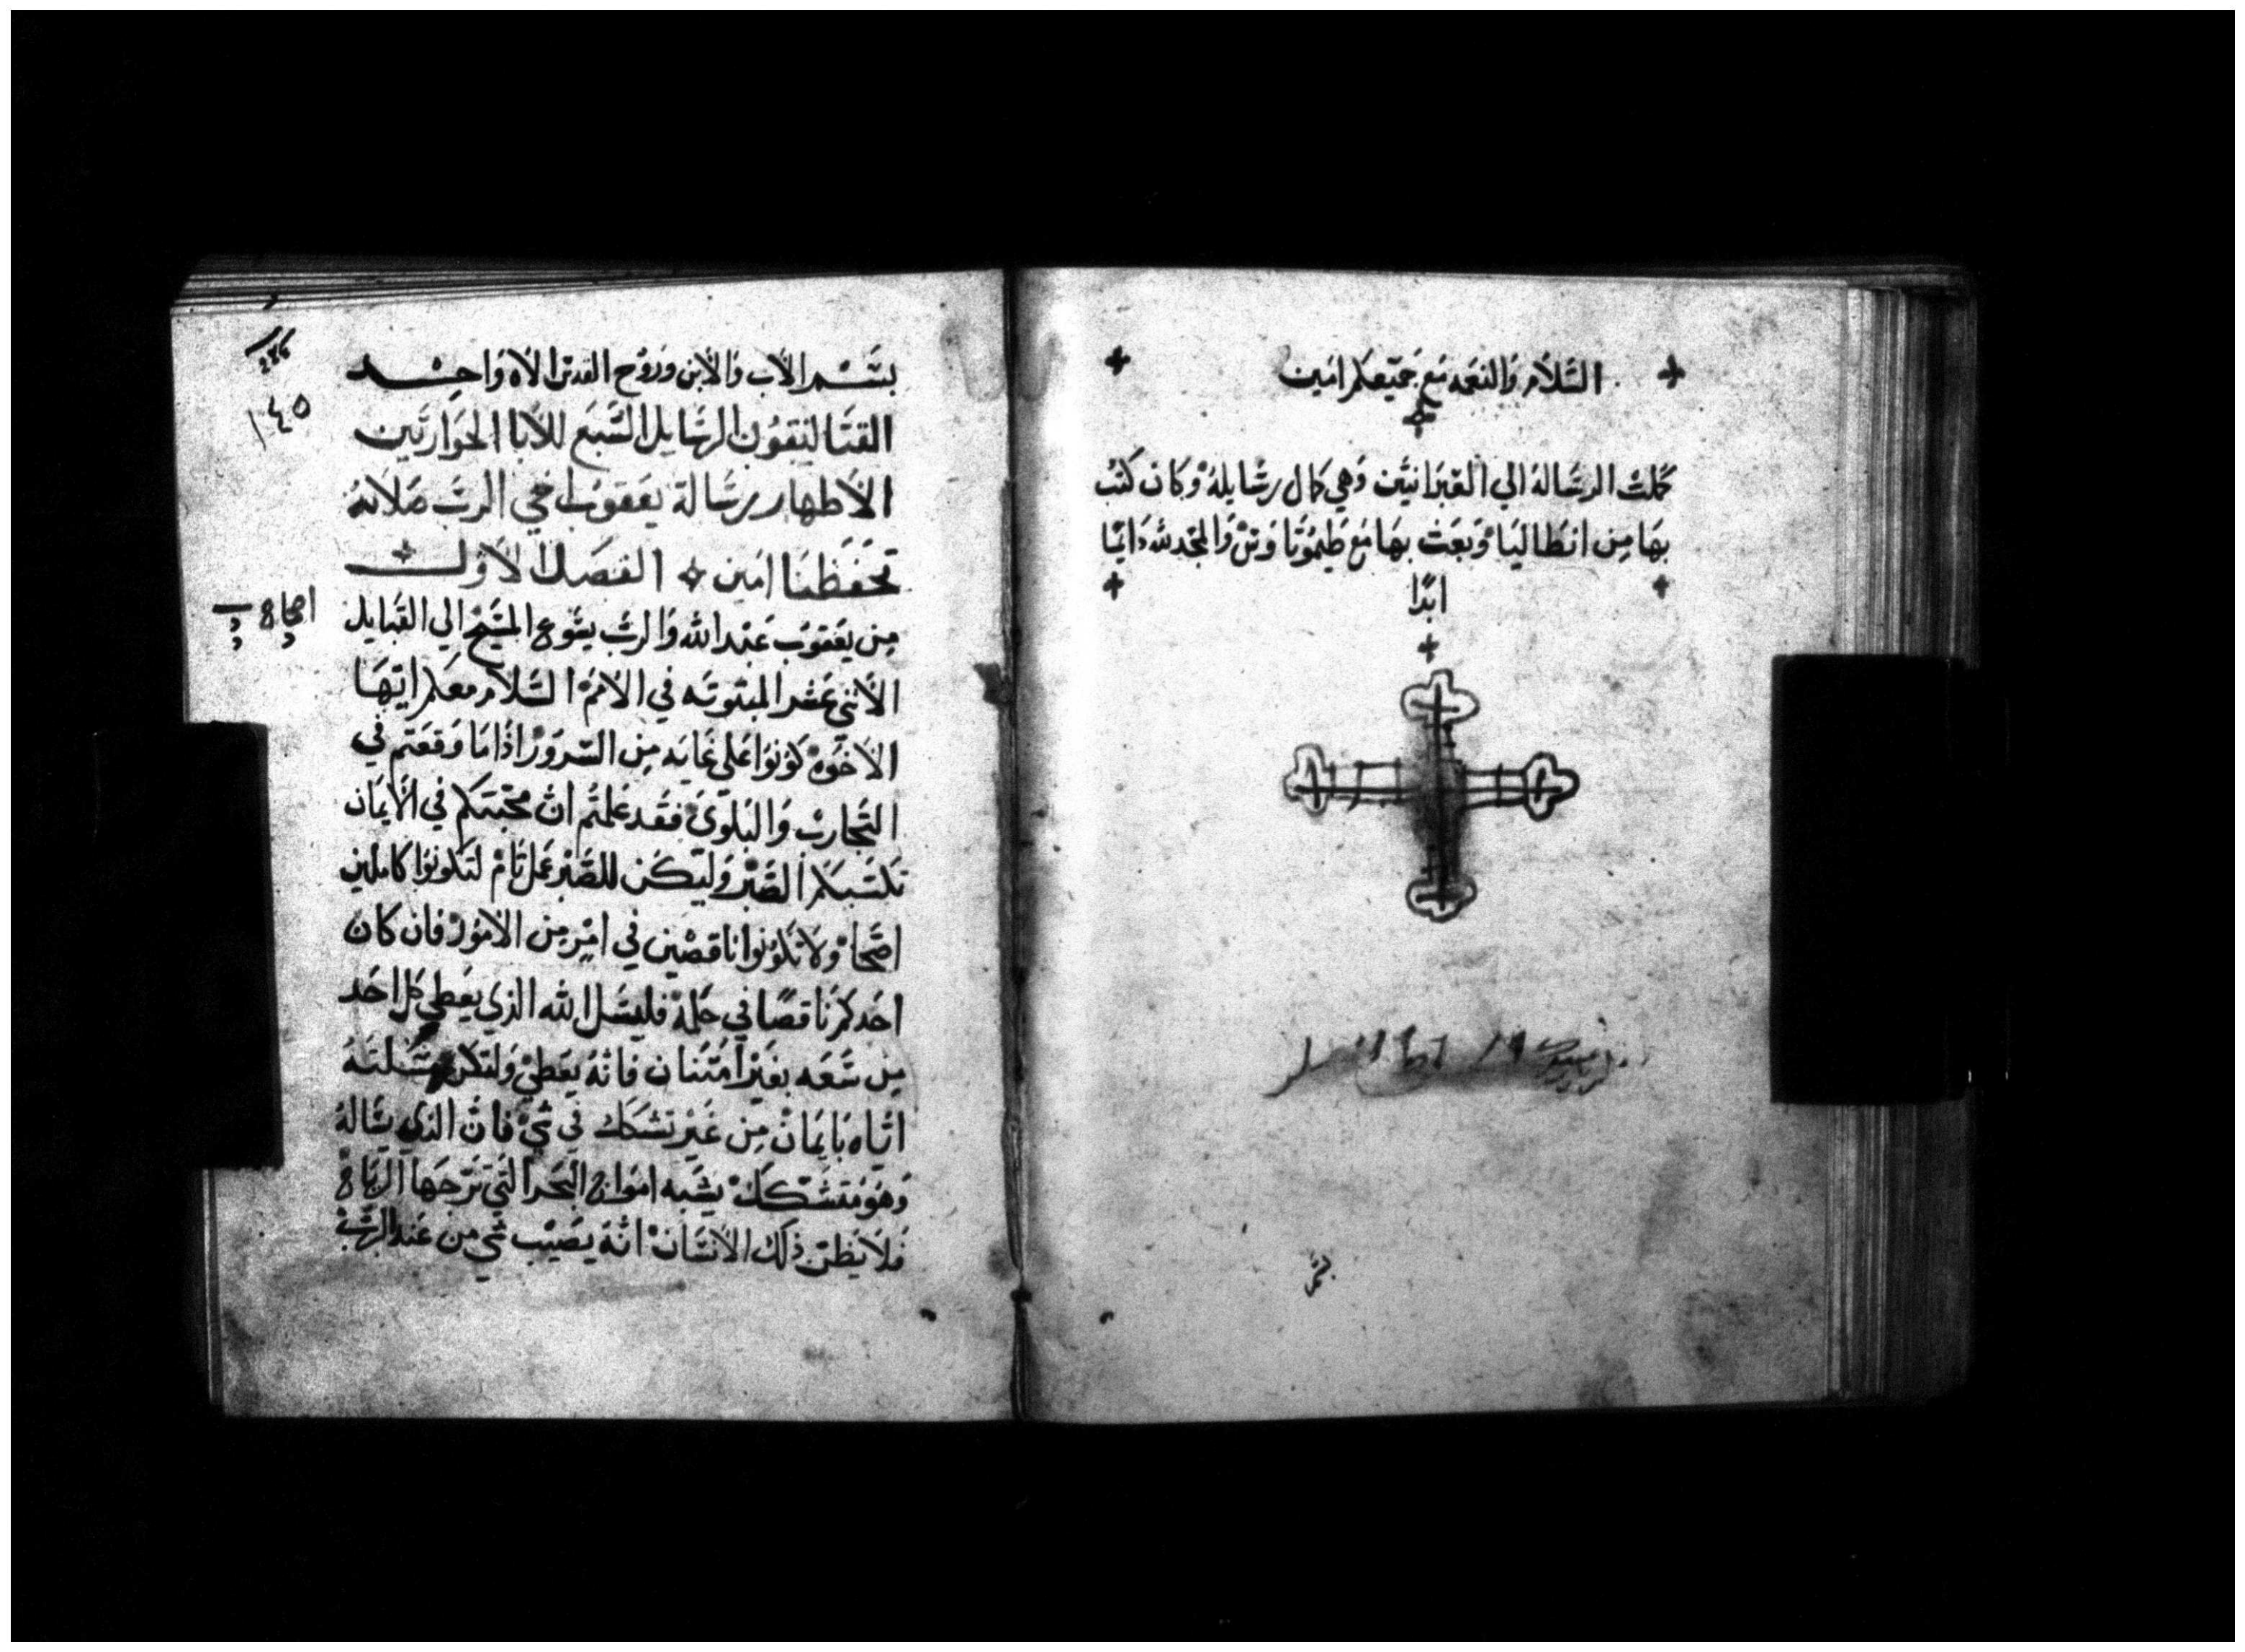 السَّلاَم وَالنعَمه مَع جَمَيعكم امَين
كملت الرسَالة الي العَبرَانيَّين وَهي كمَال رسَايلهْ وَكان كتبُ
بهَا مِن انطَاليَا وَبَعَث بهَا مَع طيمُوتَا وَس وَالمجَد لله دَايمًا
ابدًا
بسَــم الآب وَالآبن وَروُح القدس الآلاه وَاحِــد
القتَاليَقوُن الرسَايل السَّبَع للآبا الحوَاريَّين
الآطهار رسَالة يعَقوُب اخي الربَ صَلآته
تحَفَظنَا امَين الفصَل الآوَلــ
اصحاح
مِن يعَقوَب عَبَد الله وَالرب يسَوع المسَيَح الي القبَايل
الآثني عَشر المبَثوثَه في الآممْ السَّلآم معَكم ايَّتهَا
الآخوَهْ كوَنوَا عَلي غايَه مِن السَروَرْ اذَا مَا وَقعَتم في
التجَاربْ وَالبَلوَيْ فقَد عَلمتُم انْ محَبتكم في الآيمَان
تكسَبكم الصَّبْر وَليَكَن للصَّبْر عَمل تَامْ لتكوَنوَا كاملين
اصحَّا وَلآ تكوُنوا ناقصْين في امْرٍ مِن الآموُرْ فان كان
احَدكم نَاقصًا في حكمَهْ فليسَل الله الذي يعَطي كل احَد
مِن سَعَه بغيَر امَتنَان فانَهُ يعَطيْ وَلتكن مسَلتَهُ
ايَّاه بَايمَانْ مِن غيَر تشكك في شيْ فانْ الذي يسَالهُ
وَهوَ مُتشَكّكْ يشبَه امَوَاج البَحَر التي تَزعجَهَا الريَاح
فلآ يَظنّ ذلَك الآنسَانْ انَهُ يصَيَب شي مِن عَند الربْ
١٤٥